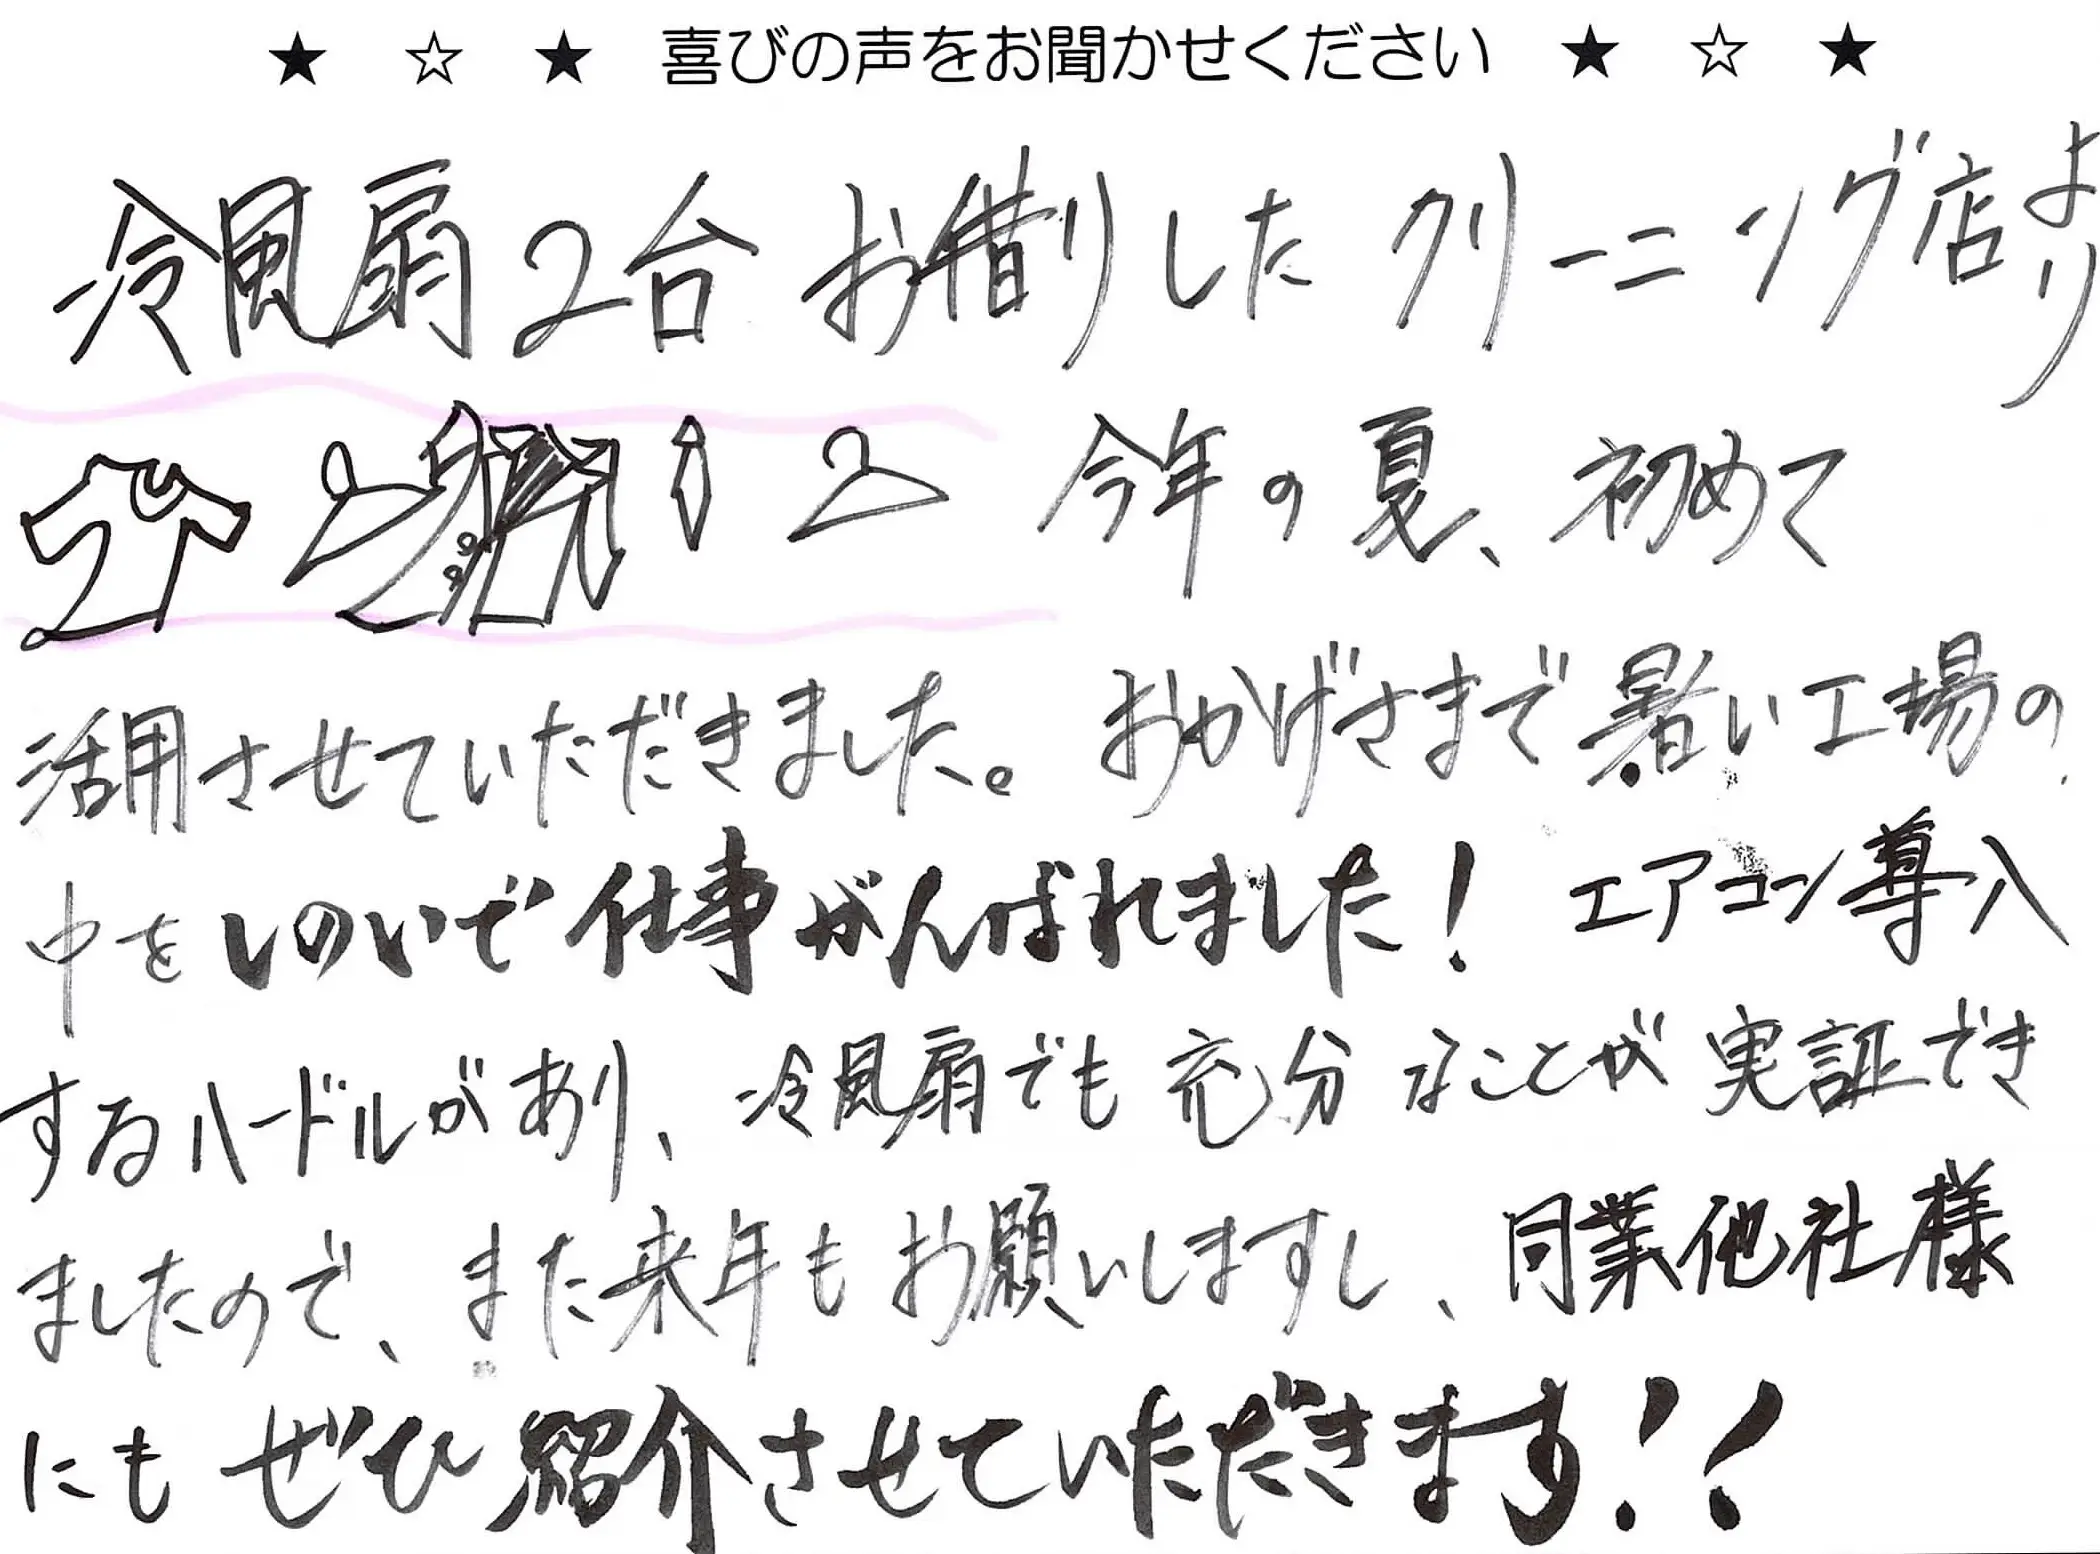 ★ ☆ ★ 喜びの声をお聞かせください ★ ☆ ★
冷風扇2台 お借りした クリーニング店より
今年の夏、初めて
活用させていただきました。おかげさまで暑い工場の
中をしのいで仕事がんばれました! エアコン導入
するハードルがあり、冷風扇でも充分なことが実証でき
ましたので、また来年もお願いしますし、同業他社様
にもぜひ紹介させていただきます!!